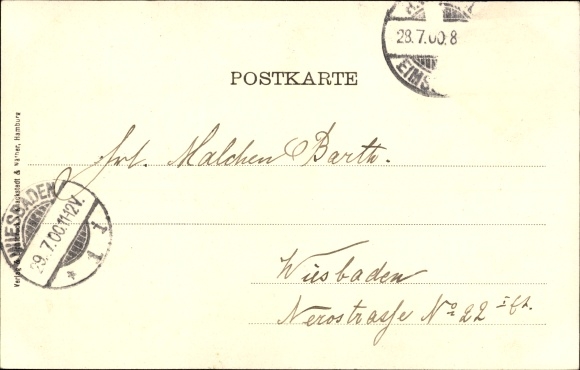 28.7.00.8
EIMS
POSTKARTE
Frl. Malchen Barth.
WIESBADEN
29.7.00.11-12V.
* 1 1
Wiesbaden
Nerostrasse No 22 I
Verlag Knackstedt & Näther, Hamburg